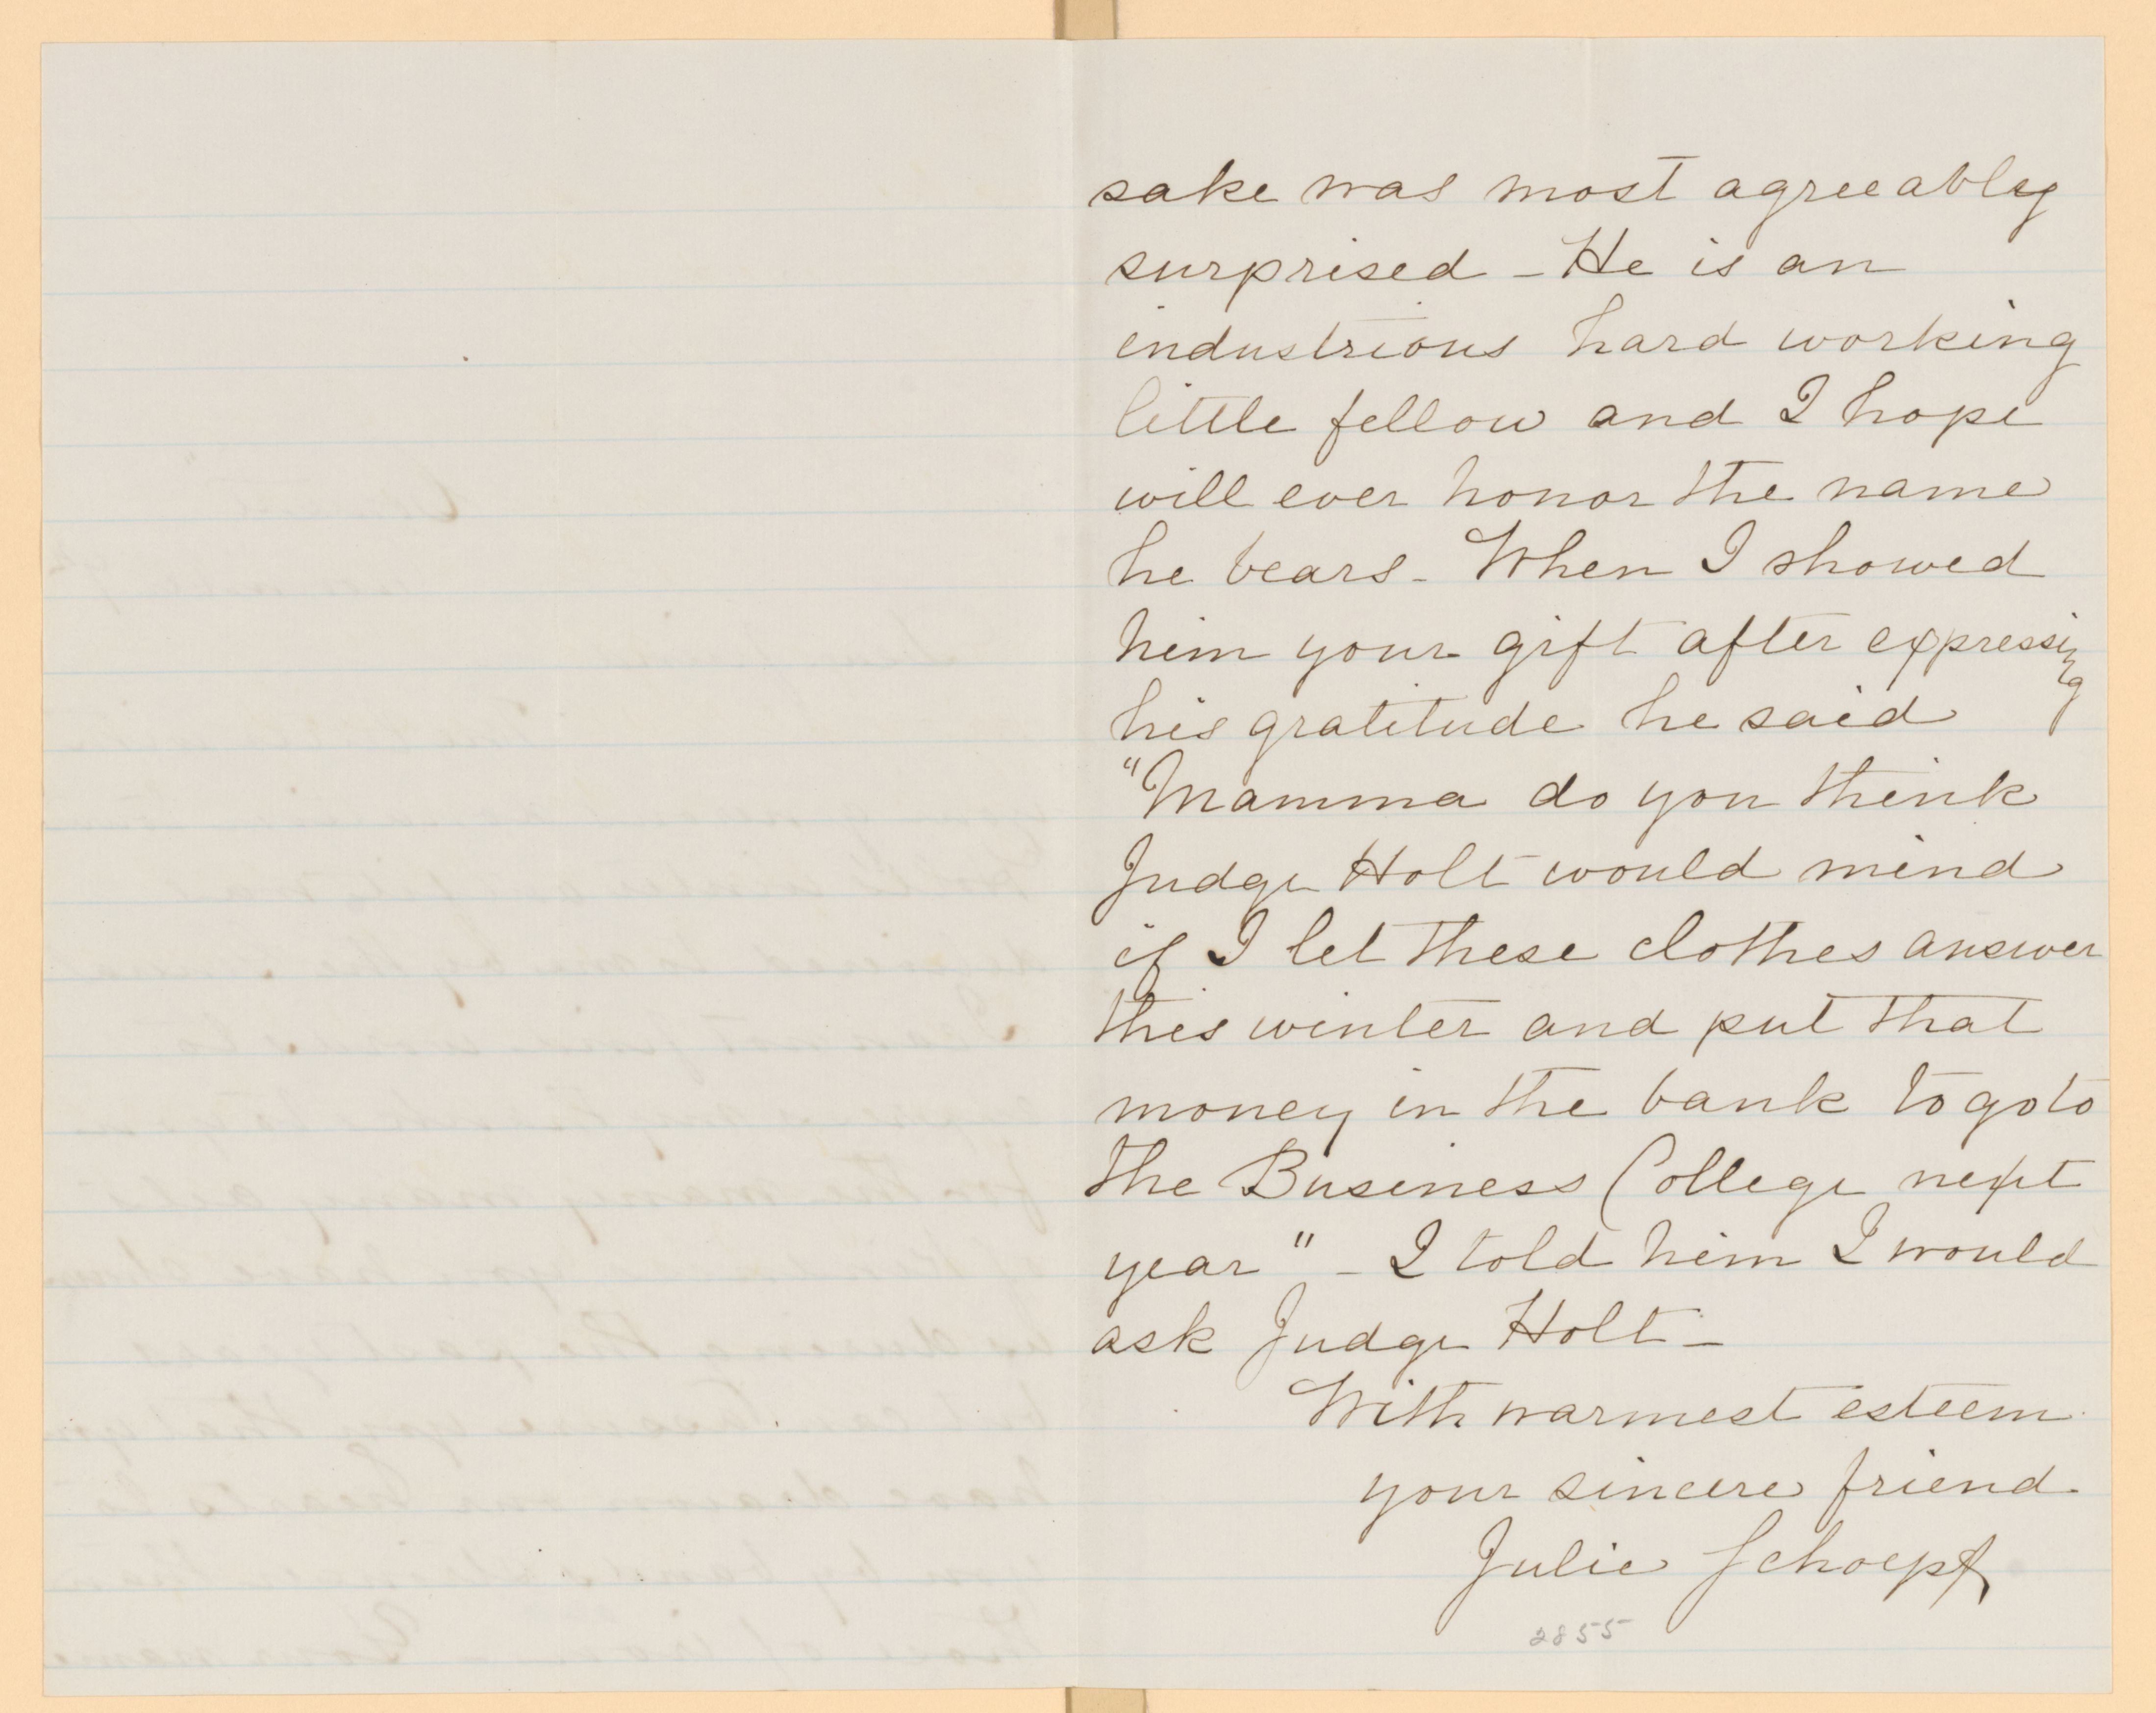 sake was most agreeably
surprised – He is an
industrious hard working
little fellow and I hope
will ever honor the name
he bears – When I showed
him your gift after expressing
his gratitude he said
"Mamma do you think
Judge Holt would mind
if I let these clothes answer
this winter and put that
money in the bank to go to
the Business College next
year" – I told him I would
ask Judge Holt –
With warmest esteem
your sincere friend
Julie Schoepf
2855